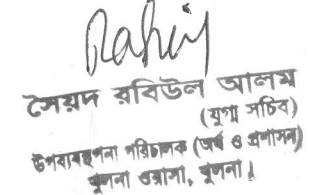 Rabiul
সৈয়দ রবিউল আলম
(যুগ্ম সচিব)
উপব্যবস্থাপনা পরিচালক (অর্থ ও প্রশাসন)
খুলনা ওয়াসা, খুলনা।